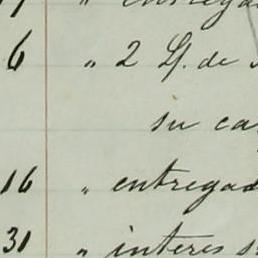 " entrega
6 " 2 Lf. de
su ca
16 " entregad
31 " interes s